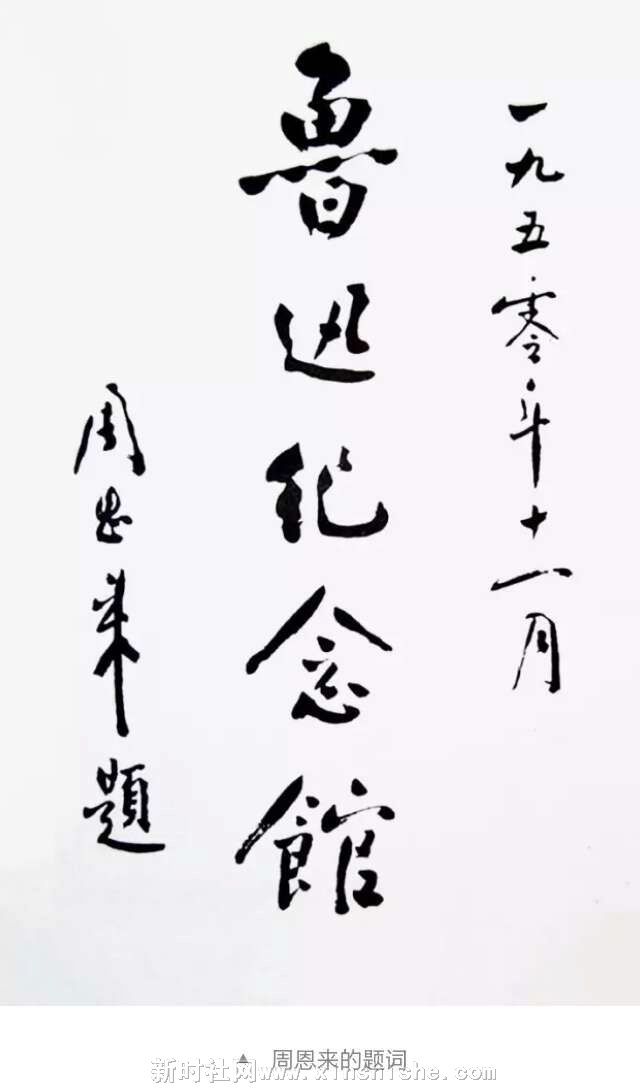 一九五零年十一月
魯迅纪念館
周恩來題
▲ 周恩来的题词
新时社网www.xinshishe.com